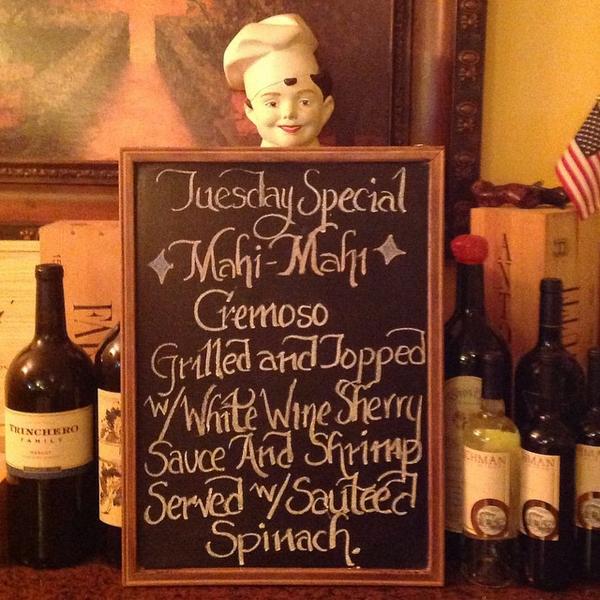 Tuesday Special
Mahi-Mahi
Cremoso
Grilled and Topped
w/ White Wine Sherry
Sauce And Shrimp
Served w/ Sauteed
Spinach.
TRINCHERO
FAMILY
MERLOT